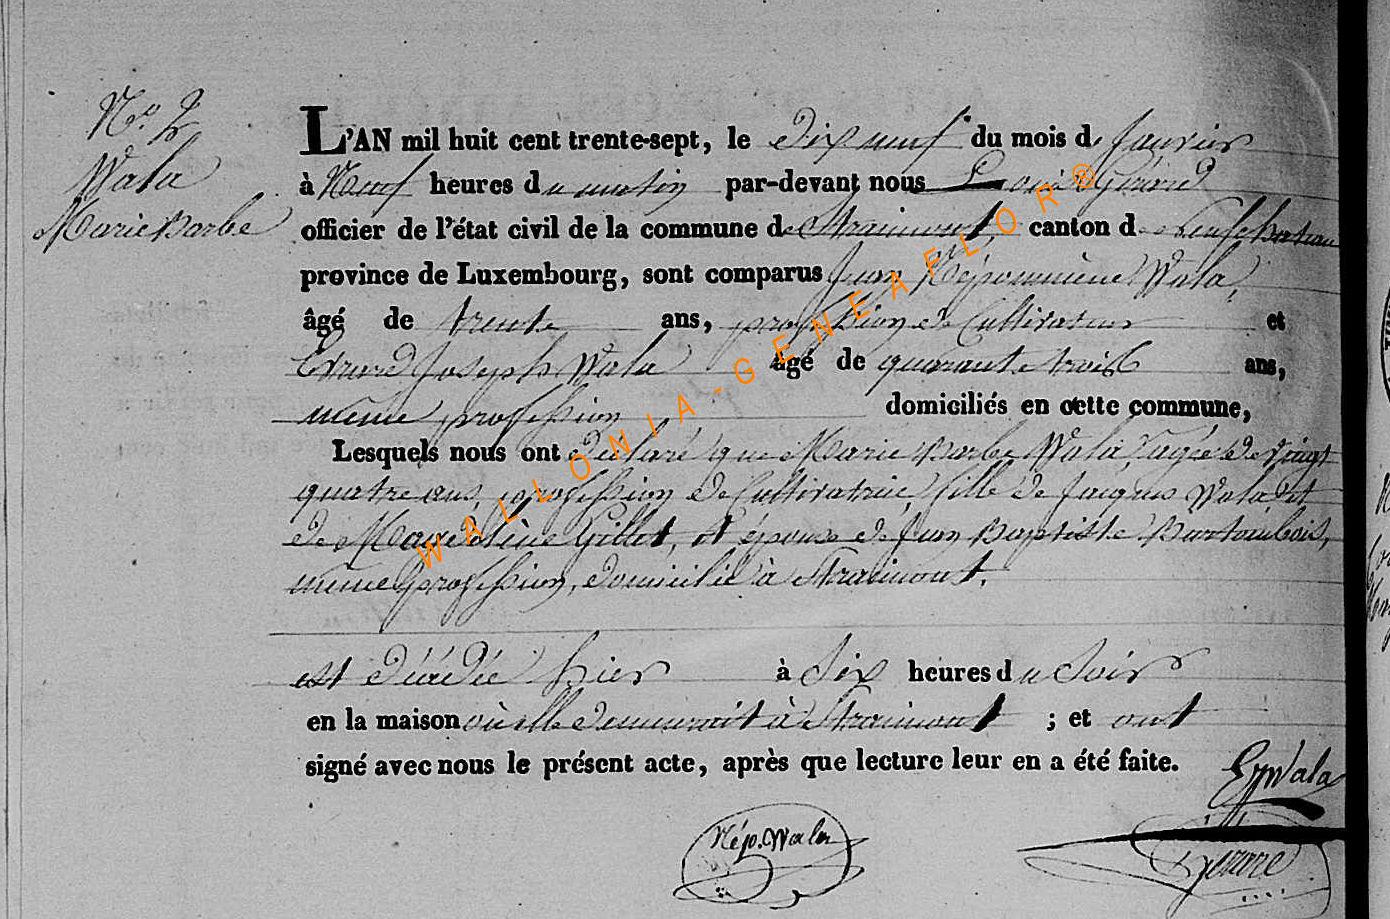 N.º 2
Wala
Marie Barbe
L'AN mil huit cent trente-sept, le dix neuf du mois de Janvier
à Neuf heures du matin par-devant nous Louis Gérard
officier de l'état civil de la commune de Straimont canton de Neufchateau
province de Luxembourg, sont comparus Jean Népomucène Wala,
âgé de trente ans, profession de Cultivateur et
Evrard Joseph Wala âgé de quarante trois ans,
même profession domiciliés en cette commune,
Lesquels nous ont déclaré que Marie Barbe Wala, agée de vingt
quatre ans, profession de Cultivatrice, fille de Jacques Wala et
de Magdeleine Gillet, et épouse de Jean Baptiste
même profession, domicilié à Straimont.
est décédée hier à Six heures du Soir
en la maison où elle demeurait à Straimont ; et ont
signé avec nous le présent acte, après que lecture leur en a été faite.
EJWala
Nép. Wala
Gerard
WALLONIA-GENEAFLOR®